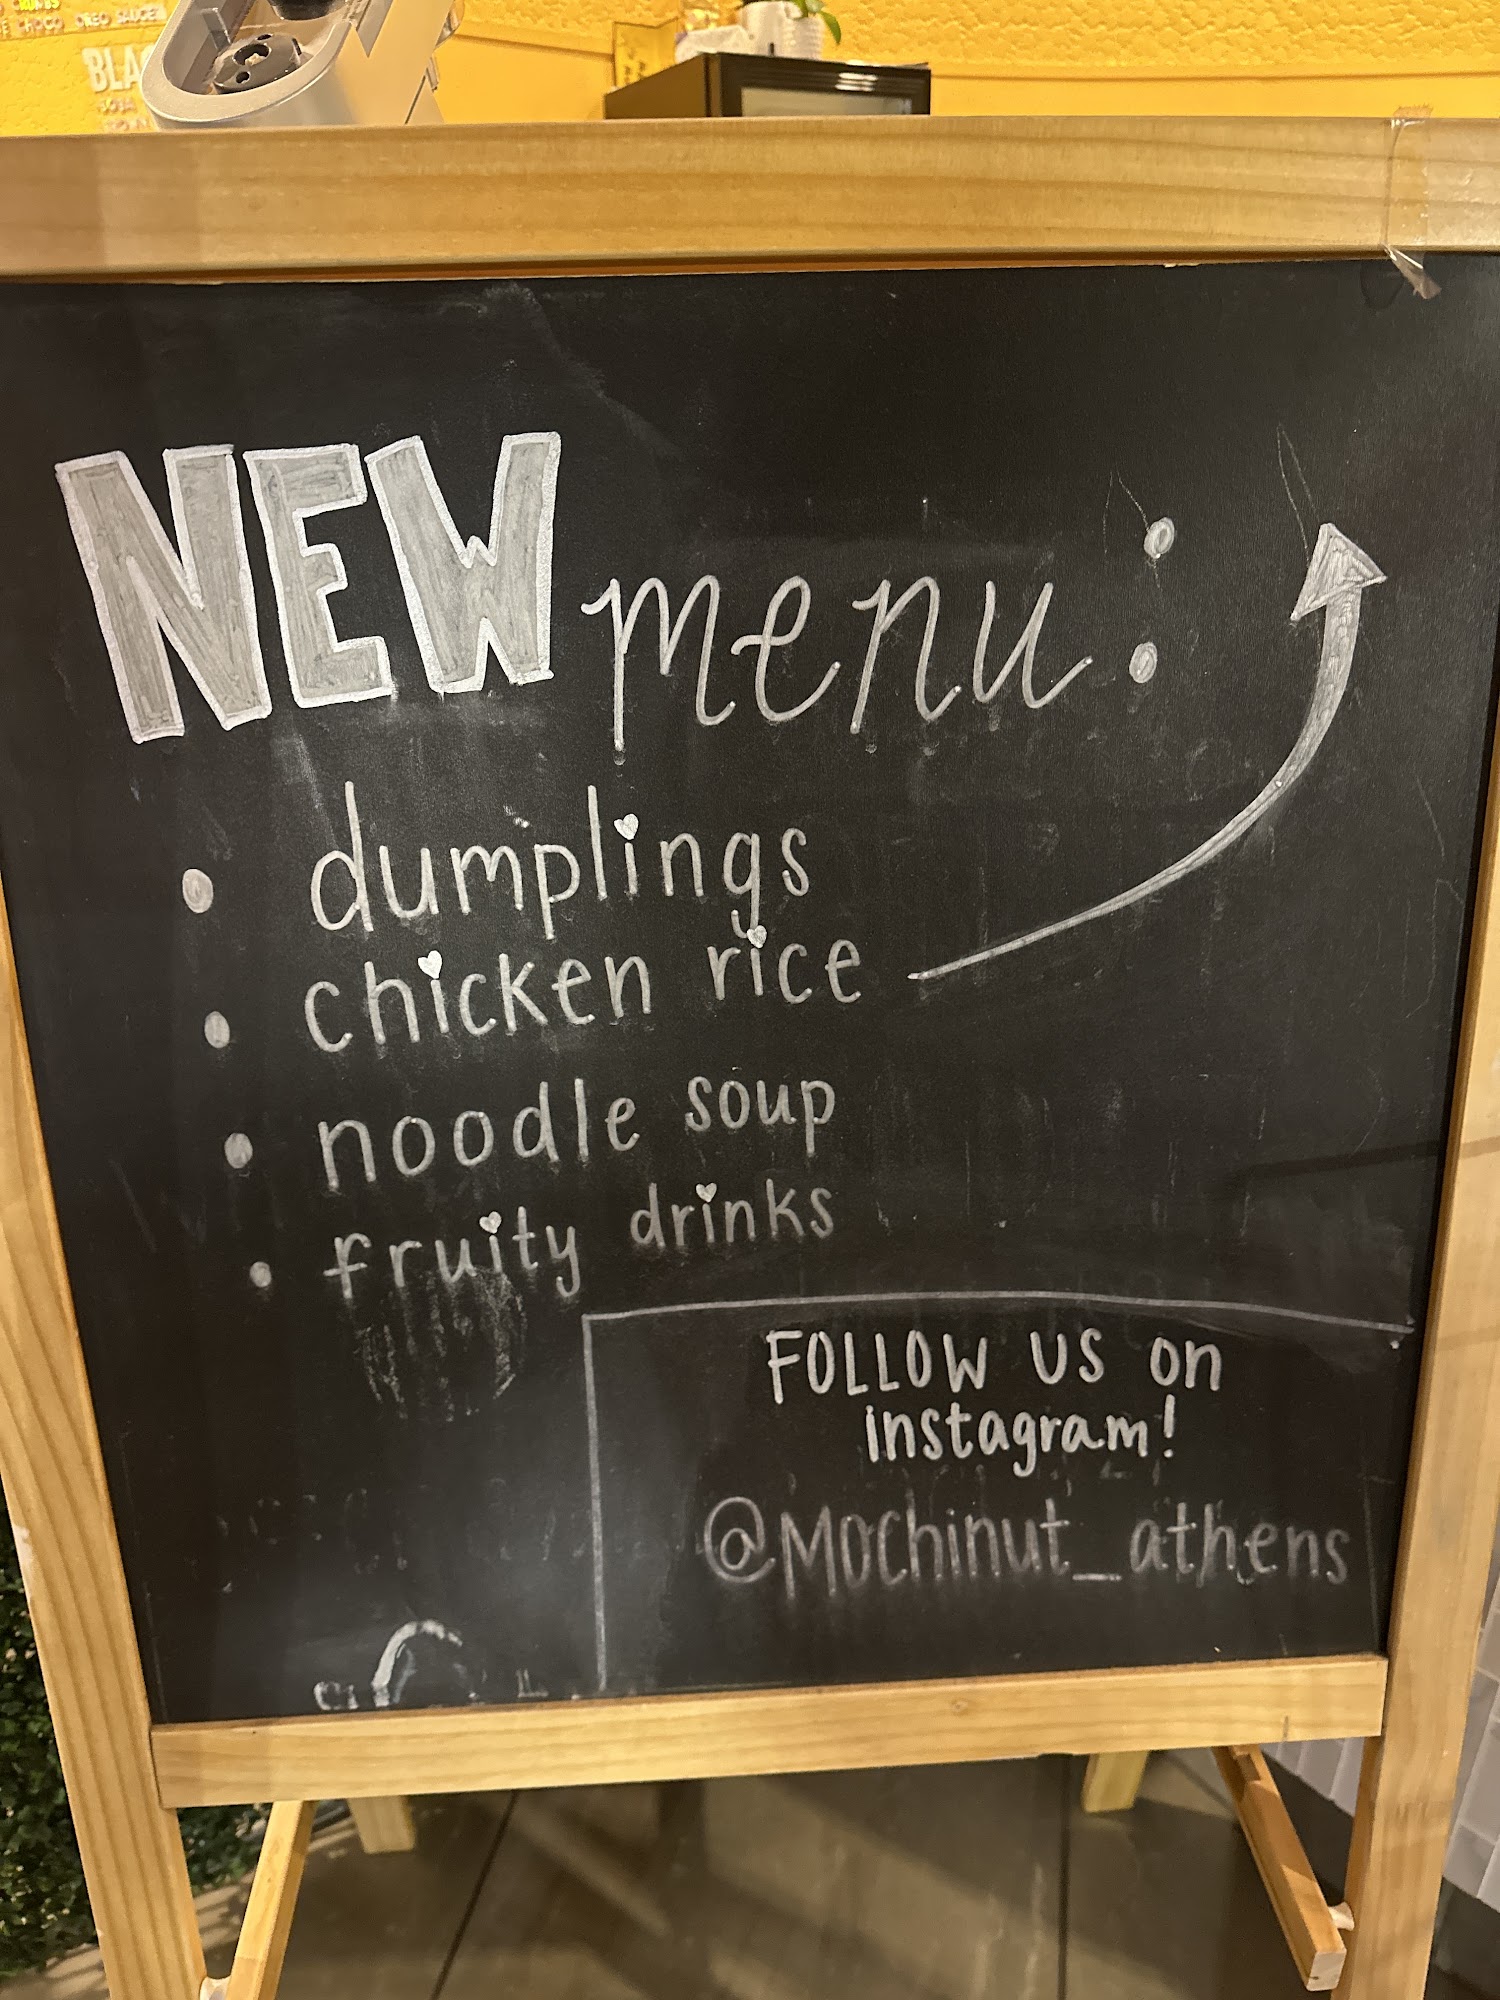 CRUMBS
CHOCO OREO SAUCE
NEW menu:
• dumplings
• chicken rice
• noodle soup
• fruity drinks
FOLLOW US on
instagram!
@Mochinut_athens